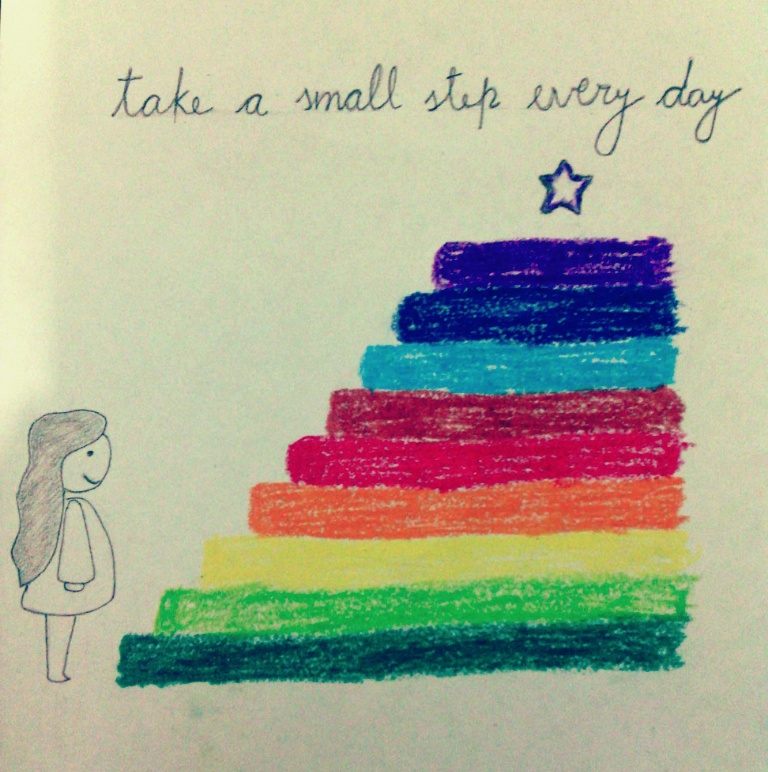 take a small step every day